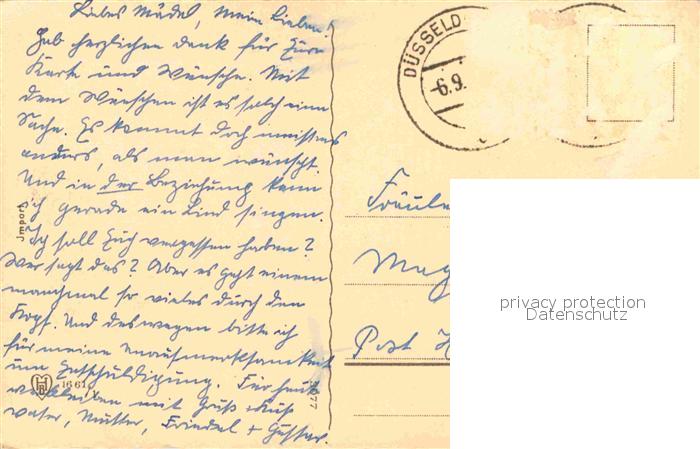 Liebes Mädel, mein Liebes!
Hab herzlichen Dank für Eure
Karte und Wünsche. Mit
dem Wünschen ist es solch eine
Sache. Es kommt doch meistens
anders, als man wünscht.
Und in der Beziehung kann
ich gerade ein Lied singen.
Ich soll Euch vergessen haben?
Wer sagt das? Aber es geht einem
manchmal so vieles durch den
Kopf. Und deswegen bitte ich
für meine Unaufmerksamkeit
um Entschuldigung. Für heute
verbleiben mit Gruß + Kuß
Vater, Mutter, Friedel + Gustav.
Import
1661
DÜSSELD
-6.9.
Fräule
Post
privacy protection
Datenschutz